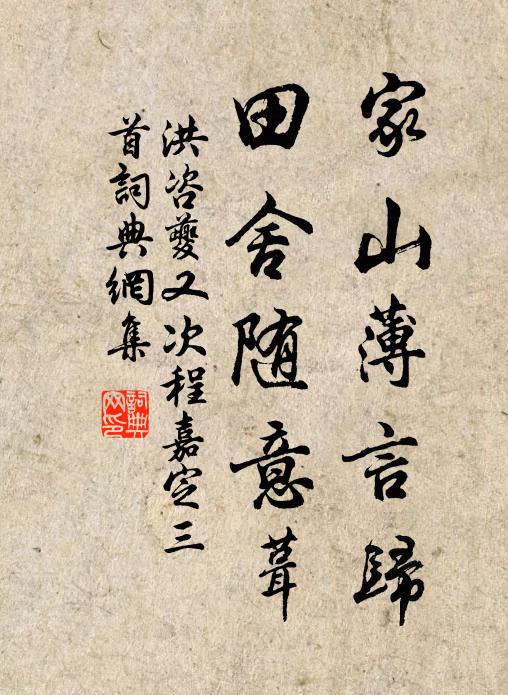 家山薄言歸
田舍随意葺
洪咨夔又次程嘉定三
首詞典網集
詞典网印